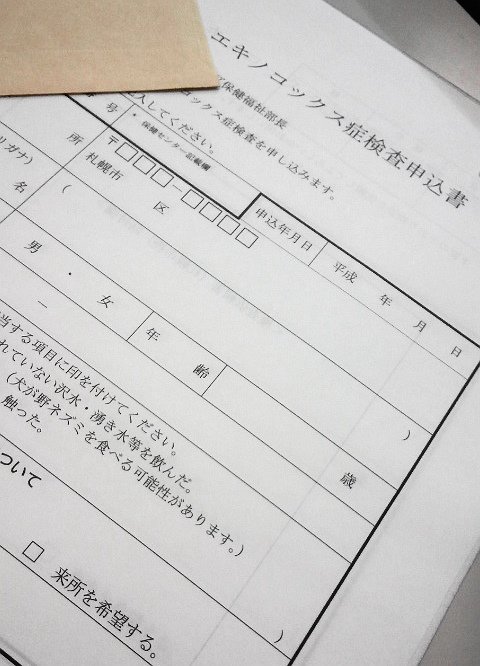 エキノコックス症検査申込書
保健福祉部長
ックス症検査を申し込みます。
入してください。
号
* 保健センター記載欄
申込年月日 平成 年 月 日
所
〒□□□-□□□□
札幌市 区
リガナ)
( )
名
男 ・ 女
年 齢
歳
−
当する項目に印を付けてください。
れていない沢水・湧き水等を飲んだ。
(犬が野ネズミを食べる可能性があります。)
触った。
)
ついて
□ 来所を希望する。